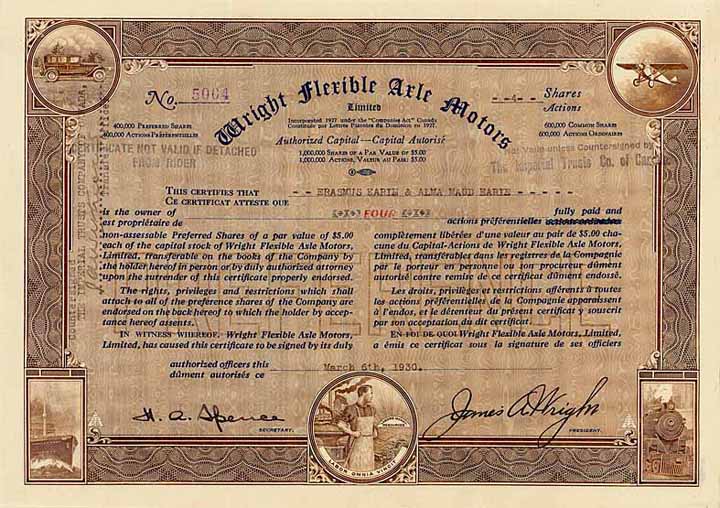 No. 5004
Wright Flexible Axle Motors
Limited
Incorporated 1927 under the "Companies Act" Canada
Constituée par Lettres Patentes du Dominion en 1927.
Authorized Capital—Capital Autorisé
1,000,000 SHARES OF A PAR VALUE OF $5.00
1,000,000 ACTIONS, VALEUR AU PAIR: $5.00
--4-- Shares
Actions
400,000 PREFERRED SHARES
400,000 ACTIONS PRÉFÉRENTIELLES
600,000 COMMON SHARES
600,000 ACTIONS ORDINAIRES
CERTIFICATE NOT VALID IF DETACHED
FROM RIDER
Not Valid unless Countersigned by
The Imperial Trusts Co. of
THIS CERTIFIES THAT
CE CERTIFICAT ATTESTE QUE
-- ERASMUS EARIE & ALMA MAUD EARIE --
is the owner of
est propriétaire de
FOUR
fully paid and
actions préférentielles
non-assessable Preferred Shares of a par value of $5.00
each of the capital stock of Wright Flexible Axle Motors,
Limited, transferable on the books of the Company by
the holder hereof in person or by duly authorized attorney
upon the surrender of this certificate properly endorsed.
The rights, privileges and restrictions which shall
attach to all of the preference shares of the Company are
endorsed on the back hereof to which the holder by accep-
tance hereof assents.
IN WITNESS WHEREOF. Wright Flexible Axle Motors,
Limited, has caused this certificate to be signed by its duly
complètement libérées d'une valeur au pair de $5.00 cha-
cune du Capital-Actions de Wright Flexible Axle Motors,
Limited, transférables dans les registres de la Compagnie
par le porteur en personne ou son procureur dûment
autorisé contre remise de ce certificat dûment endossé.
Les droits, privilèges et restrictions afférents à toutes
les actions préférentielles de la Compagnie apparaissent
à l'endos, et le détenteur du présent certificat y souscrit
par son acceptation du dit certificat.
EN FOI DE QUOI Wright Flexible Axle Motors, Limited,
a émis ce certificat sous la signature de ses officiers
authorized officers this
dûment autorisés ce
March 6th, 1930.
H. A. Spence
SECRETARY.
James A Wright
PRESIDENT.
LABOR OMNIA VINCIT